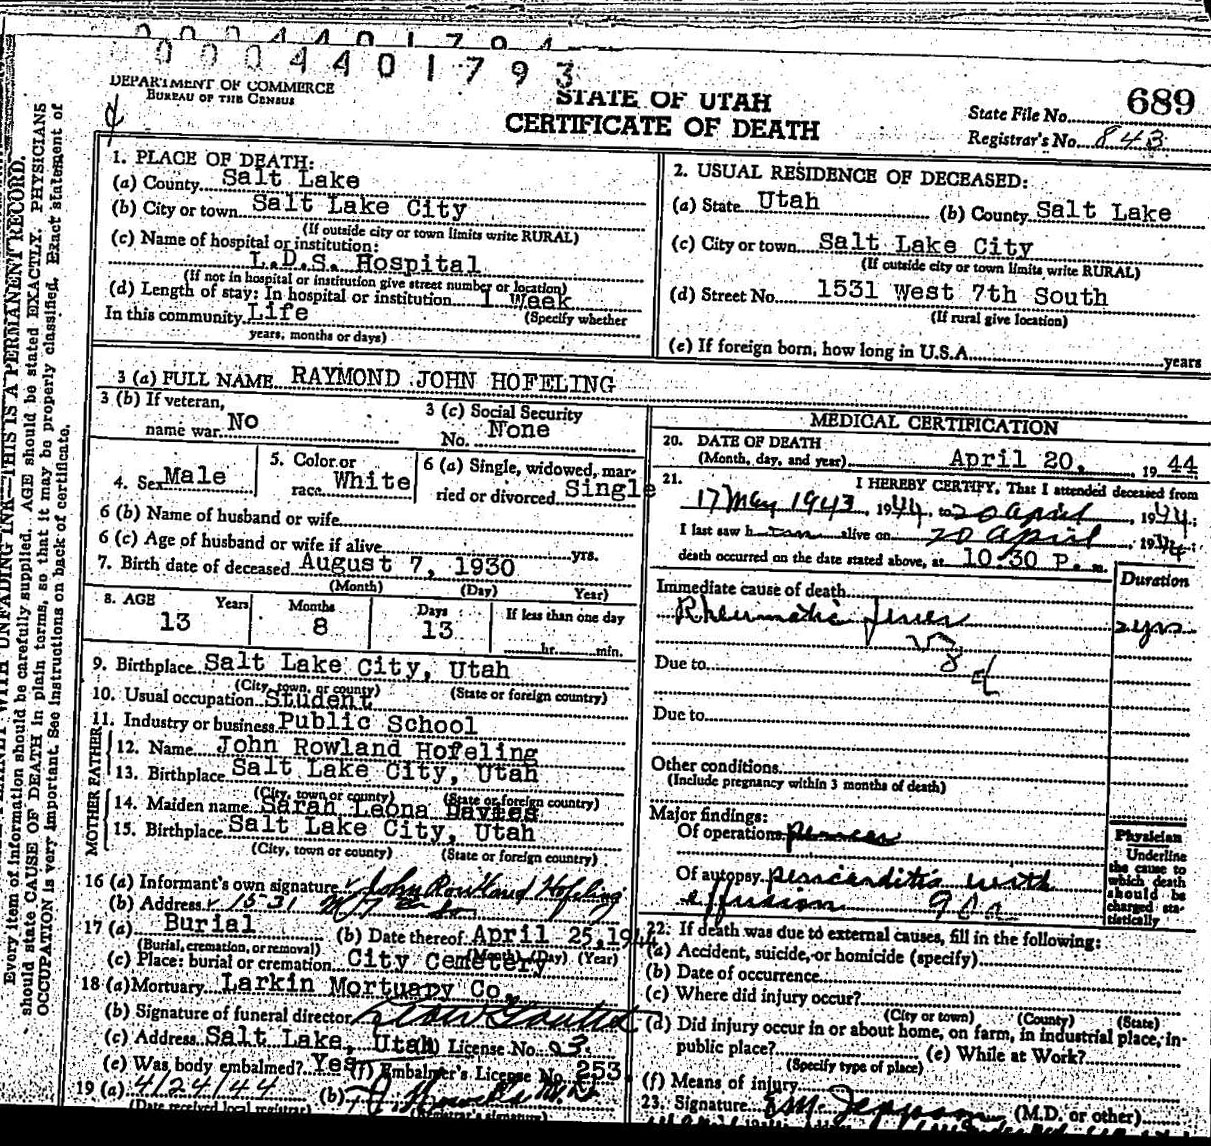 00004401794
00004401793
DEPARTMENT OF COMMERCE
BUREAU OF THE CENSUS
STATE OF UTAH
CERTIFICATE OF DEATH
State File No. 689
Registrar's No. 843
1. PLACE OF DEATH:
(a) County Salt Lake
(b) City or town Salt Lake City
(If outside city or town limits write RURAL)
(c) Name of hospital or institution:
L.D.S. Hospital
(If not in hospital or institution give street number or location)
(d) Length of stay: In hospital or institution 1 Week
In this community Life (Specify whether
years, months or days)
2. USUAL RESIDENCE OF DECEASED:
(a) State Utah (b) County Salt Lake
(c) City or town Salt Lake City
(If outside city or town limits write RURAL)
(d) Street No. 1531 West 7th South
(If rural give location)
(e) If foreign born, how long in U.S.A. years
3 (a) FULL NAME RAYMOND JOHN HOFELING
3 (b) If veteran,
name war No
3 (c) Social Security
No. None
4. Sex Male
5. Color or
race White
6 (a) Single, widowed, mar-
ried or divorced Single
6 (b) Name of husband or wife
6 (c) Age of husband or wife if alive yrs.
7. Birth date of deceased August 7, 1930
(Month) (Day) Year)
8. AGE Years Months Days If less than one day
13 8 13 hr. min.
9. Birthplace Salt Lake City, Utah
(City, town, or county) (State or foreign country)
10. Usual occupation Student
11. Industry or business Public School
FATHER
12. Name John Rowland Hofeling
13. Birthplace Salt Lake City, Utah
(City, town or county) (State or foreign country)
MOTHER
14. Maiden name Sarah Leona Davies
15. Birthplace Salt Lake City, Utah
(City, town or county) (State or foreign country)
16 (a) Informant's own signature John Rowland Hofeling
(b) Address 1531 W 7th So
17 (a) Burial (b) Date thereof April 25, 1944
(Burial, cremation, or removal) (Month) (Day) (Year)
(c) Place: burial or cremation City Cemetery
18 (a) Mortuary Larkin Mortuary Co.
(b) Signature of funeral director
(c) Address Salt Lake, Utah (d) License No. 23.
(e) Was body embalmed? Yes (f) Embalmer's License No. 253
19 (a) 4/24/44 (b)
(Date received local registrar)
MEDICAL CERTIFICATION
20. DATE OF DEATH
(Month, day, and year) April 20, 1944
21. I HEREBY CERTIFY, That I attended deceased from
17 May 1943, 1944, to 20 April, 1944;
I last saw h alive on 20 April, 1944;
death occurred on the date stated above, at 10:30 P. m.
Duration
Immediate cause of death
Rheumatic fever 2 yrs.
Due to
Due to
Other conditions
(Include pregnancy within 3 months of death)
Major findings:
Of operations
Of autopsy pericarditis with
effusion 900
Physician
Underline
the cause to
which death
should be
charged sta-
tistically
22. If death was due to external causes, fill in the following:
(a) Accident, suicide, or homicide (specify)
(b) Date of occurrence
(c) Where did injury occur?
(City or town) (County) (State)
(d) Did injury occur in or about home, on farm, in industrial place, in-
public place? (e) While at Work?
(Specify type of place)
(f) Means of injury
23. Signature (M.D. or other)
WITH UNFADING INK—THIS IS A PERMANENT RECORD.
Every item of information should be carefully supplied. AGE should be stated EXACTLY. PHYSICIANS
should state CAUSE OF DEATH in plain terms, so that it may be properly classified. Exact statement of
OCCUPATION is very important. See instructions on back of certificate.